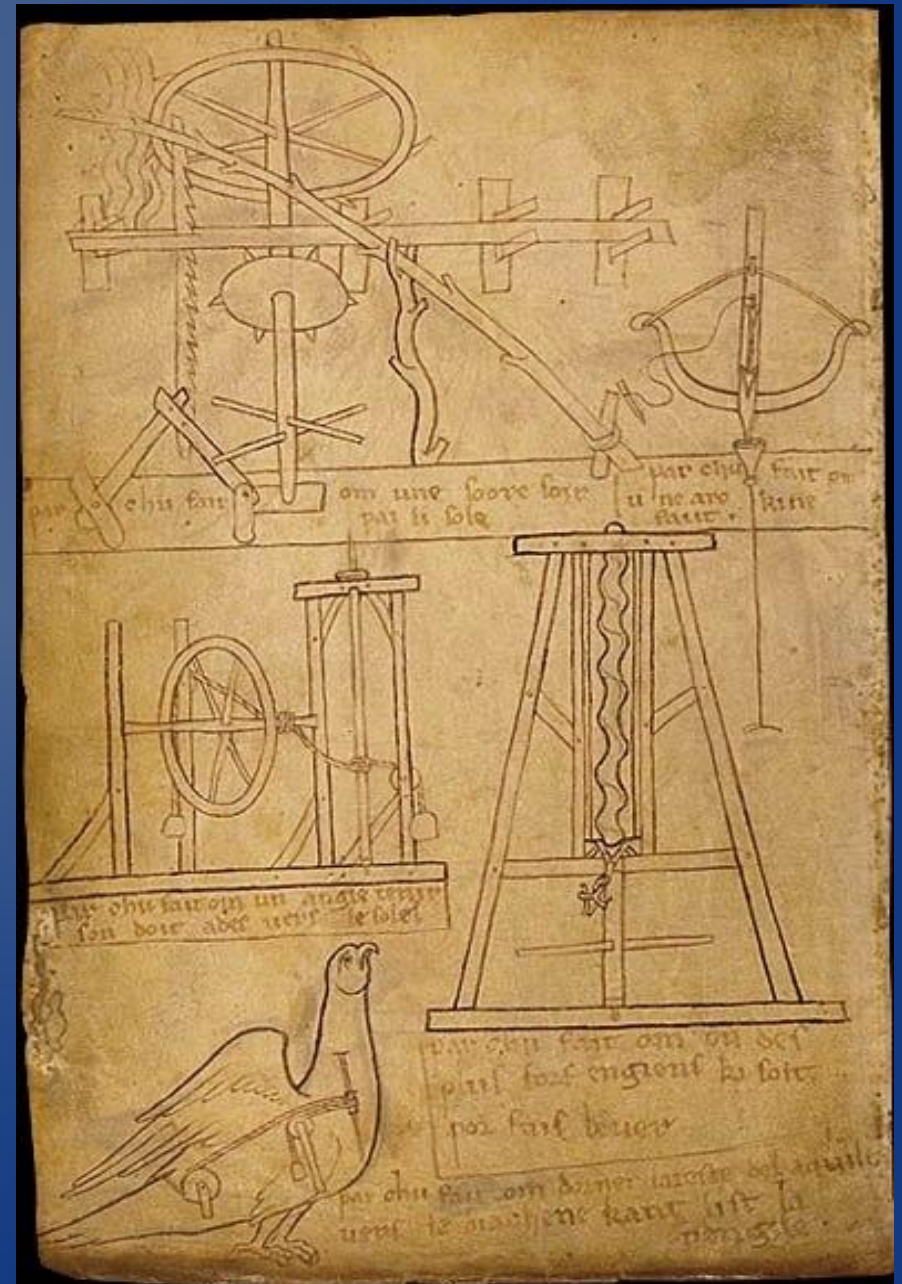 par chu fait om une soore soir
par li sole
par chu fait om
u ne arc kine
faut .
par chu fait om un angle tenir
son doit ades vers le solel
par chu fait om on des
plus fors engiens ki soit
por fais lever
par chu fait om dorner la teste del aquile
vers le diachene kant list la
vengile